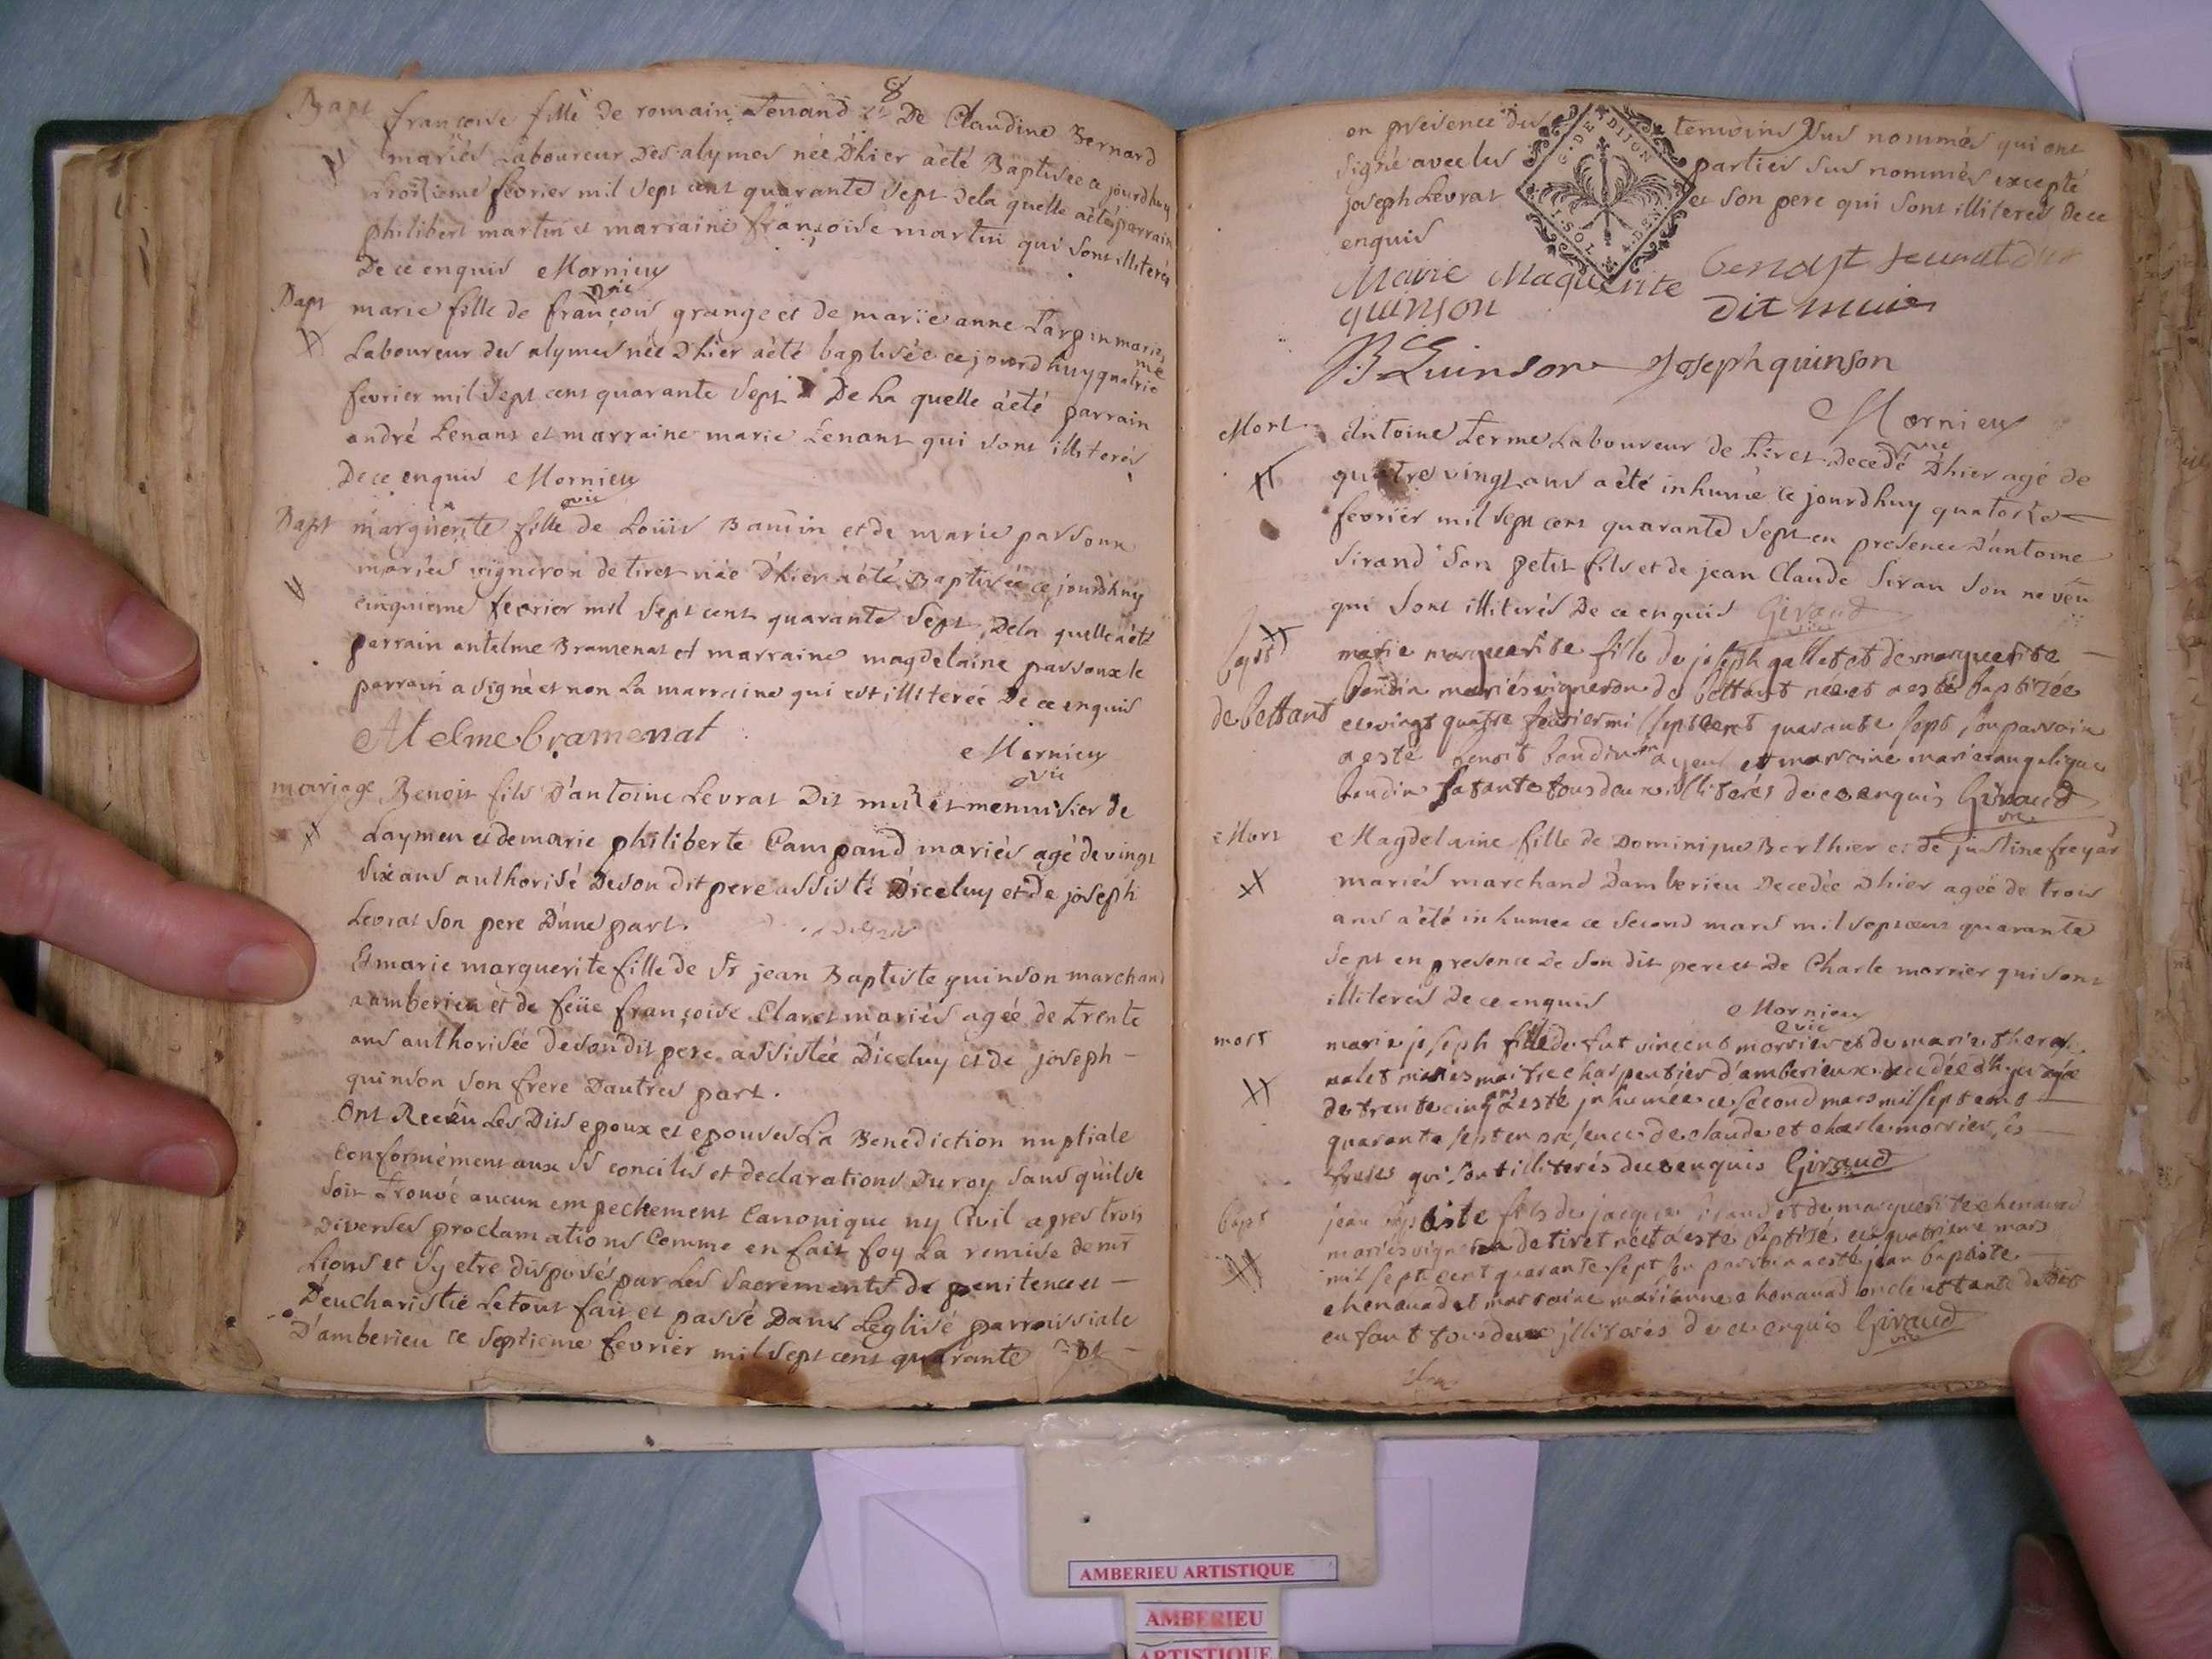 8
Bapt françoise fille de romain Tenand et De Claudine Bernard
mariés Laboureur Des alymes née D'hier aété Baptisée ce jourdhuy
troisieme fevrier mil sept cent quarante sept Dela quelle aété parrain
philibert martin et marraine françoise martin qui sont illiterés
De ce enquis Mornieu
vic
Bapt marie fille de françois grange et de marie anne Tarpin mariés
Laboureur des alymes née D'hier aété baptisée ce jourd huy quatrie
me
fevrier mil sept cent quarante sept De La quelle aété parrain
andré Lenant et marraine marie Lenant qui sont illiterés
De ce enquis Mornieu
vic
Bapt marguerite fille de Loüis Baudin et de marie passoux
mariés vigneron de tiret née D'hier aété Baptisée ce jourdhuy
cinquieme fevrier mil sept cent quarante sept Dela quelle aété
parrain antelme Bramenat et marraine magdelaine passoux le
parrain a signé et non La marraine qui est illiterée De ce enquis
Atelme bramenat
Mornieu
vic
mariage Benoit fils D'antoine Levrat Dit et menuisier de
Laymen et de marie philiberte Campand mariés agé de vingt
six ans authorisé De son dit pere assisté D'iceluy et de joseph
Levrat son pere D'une part.
Et marie marguerite fille de Sr jean Baptiste quinson marchand
a amberieu et de feüe françoise Claret mariés agée de trente
ans authorisée de son dit pere assistée D'iceluy et de joseph
quinson son frere Dautres part.
Ont Receu Les Dits epoux et epouses La Benediction nuptiale
conformément aux SS conciles et declarations Du roy sans qu'il se
soit trouvé aucun empechement Canonique ny Civil apres trois
Diverses proclamations Comme en fait foy La remise de mr
Lions et sy etre disposés par Les sacrements de penitence et
D'eucharistie Le tout fait et passé Dans Leglise parroissiale
D'amberieu ce septieme fevrier mil sept cent quarante sept
en presence des temoins sus nommés qui ont
signé avec les parties sus nommés excepté
joseph Levrat et son pere qui sont illiterés De ce
enquis
G. DE DIJON
1. SOL 4. DEN
Marie Maguerite
quinson
benoyt leurat
dit
B Quinson Joseph quinson
Mornieu
vic
Mort Antoine Terme Laboureur de tiret Decedé D'hier agé de
quatre vingt ans a été inhumé ce jourdhuy quatorze
fevrier mil sept cent quarante sept en presence D'antoine
Sirand son petit fils et de jean Claude Siran son neveu
qui sont illiterés De ce enquis Giraud
vic
bapt marie marguerite fille de joseph gallet et de marguerite
de bettant baudin mariés vigneron de bettant née et a esté baptizée
ce vingt quatre fevrier mil sept cent quarante sept son parrain
a esté benoit baudin ayeul et marraine marie angelique
baudin sa tante tous deux illiterés de ce enquis Giraud
vic
Mort Magdelaine fille de Dominique Berthier et de justine freyar
mariés marchand D'amberieu Decedée D'hier ageé de trois
ans a été inhumée ce second mars mil sept cent quarante
sept en presence De son dit pere et De Charle morrier qui sont
illiterés De ce enquis Mornieu
vic
mort marie joseph fille de fut vincent morrier et de marie
mariés maitre charpentier d'amberieux decedée d'hier agée
de trente cinq ans a esté inhumée ce second mars mil sept cent
quarante sept en presence de claude et charle morrier ses
freres qui sont illiterés de ce enquis Giraud
bapt jean baptiste fils de jacques et de marguerite chenavad
mariés vigneron de tiret né et a esté baptisé ce quatrieme mars
mil sept cent quarante sept son parrain a esté jean baptiste
chenavad et marraine marianne chenavad oncle et tante dudit
enfant tous deux illiterés de ce enquis Giraud
vic
AMBERIEU ARTISTIQUE
AMBERIEU
ARTISTIQUE